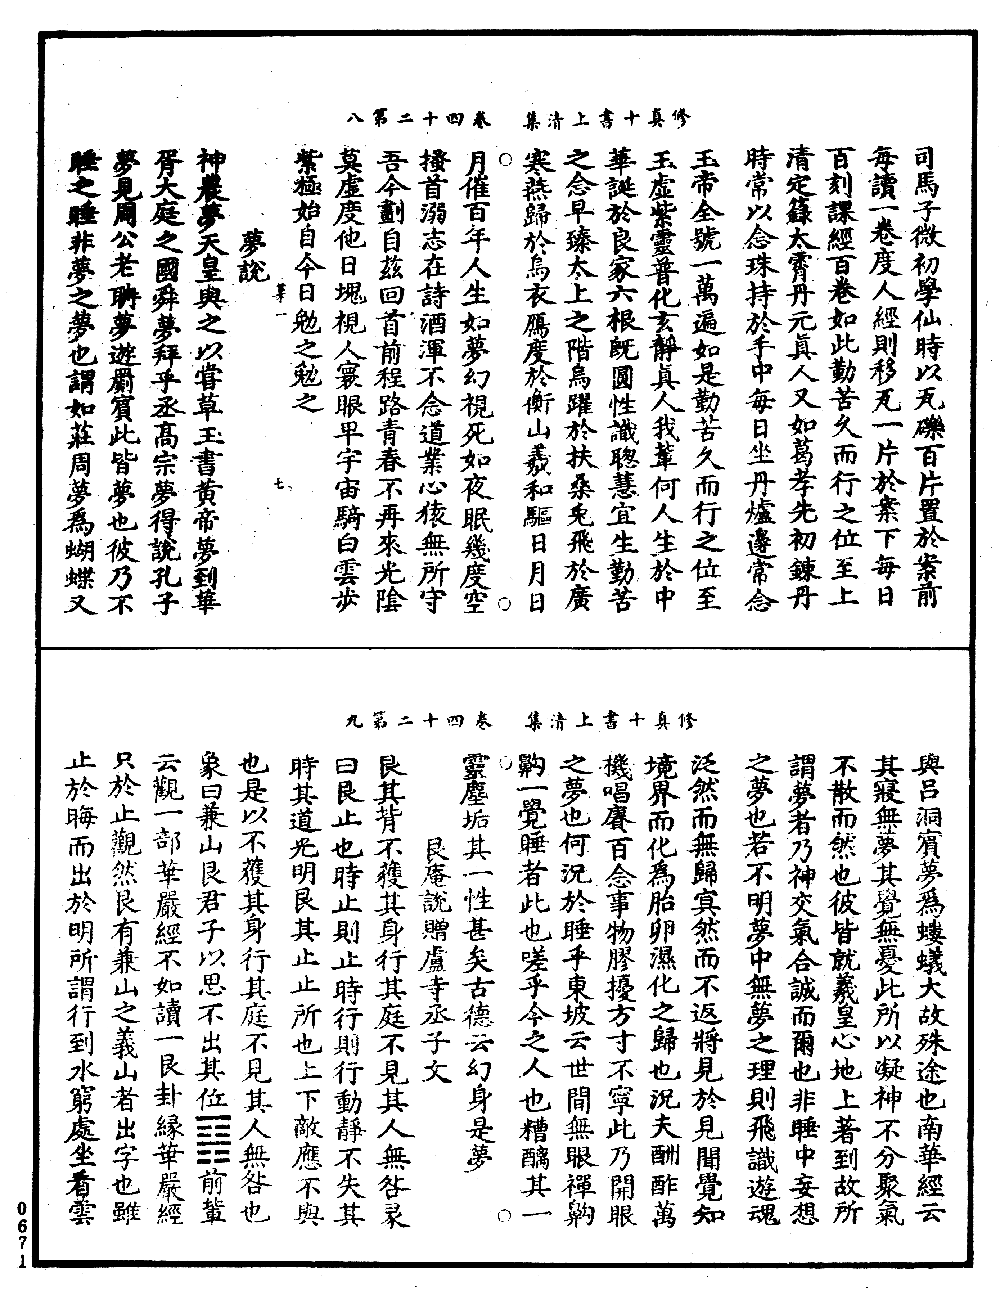 修真十書上清集　卷四十二第八
司馬子微初學仙時以瓦礫百片置於案前
每讀一卷度人經則移瓦一片於案下每日
百刻課經百卷如此勤苦久而行之位至上
清定籙太霄丹元真人又如葛孝先初鍊丹
時常以念珠持於手中每日坐丹爐邊常念
玉帝全號一萬遍如是勤苦久而行之位至
玉虛紫靈普化玄靜真人我輩何人生於中
華誕於良家六根既圓性識聰慧宜生勤苦
之念早臻太上之階烏躍於扶桑兎飛於廣
寒燕歸於烏衣鴈度於衡山羲和驅日月日
月催百年人生如夢幻視死如夜眠幾度空
搔首溺志在詩酒渾不念道業心猿無所守
吾今劃自茲回首前程路青春不再來光陰
莫虛度他日塊視人寰眼卑宇宙騎白雲步
紫極始自今日勉之勉之
夢說
神農夢天皇與之以嘗草玉書黃帝夢到華
胥大庭之國舜夢拜乎丞高宗夢得說孔子
夢見周公老聃夢遊罽賓此皆夢也彼乃不
睡之睡非夢之夢也謂如莊周夢為蝴蝶又
修真十書上清集　卷四十二第九
與呂洞賓夢為螻蟻大故殊途也南華經云
其寢無夢其覺無憂此所以凝神不分聚氣
不散而然也彼皆就羲皇心地上著到故所
謂夢者乃神交氣合誠而爾也非睡中妄想
之夢也若不明夢中無夢之理則飛識遊魂
泛然而無歸寘然而不返將見於見聞覺知
境界而化為胎卵濕化之歸也況夫酬酢萬
機唱賡百念事物膠擾方寸不寧此乃開眼
之夢也何況於睡乎東坡云世間無眼禪齁
齁一覺睡者此也嗟乎今之人也糟醨其一
靈塵垢其一性甚矣古德云幻身是夢
艮庵說贈盧寺丞子文
艮其背不獲其身行其庭不見其人無咎彖
曰艮止也時止則止時行則行動靜不失其
時其道光明艮其止止所也上下敵應不與
也是以不獲其身行其庭不見其人無咎也
象曰兼山艮君子以思不出其位䷳前輩
云觀一部華嚴經不如讀一艮卦緣華嚴經
只於止觀然艮有兼山之義山者出字也雖
止於晦而出於明所謂行到水窮處坐看雲
0671